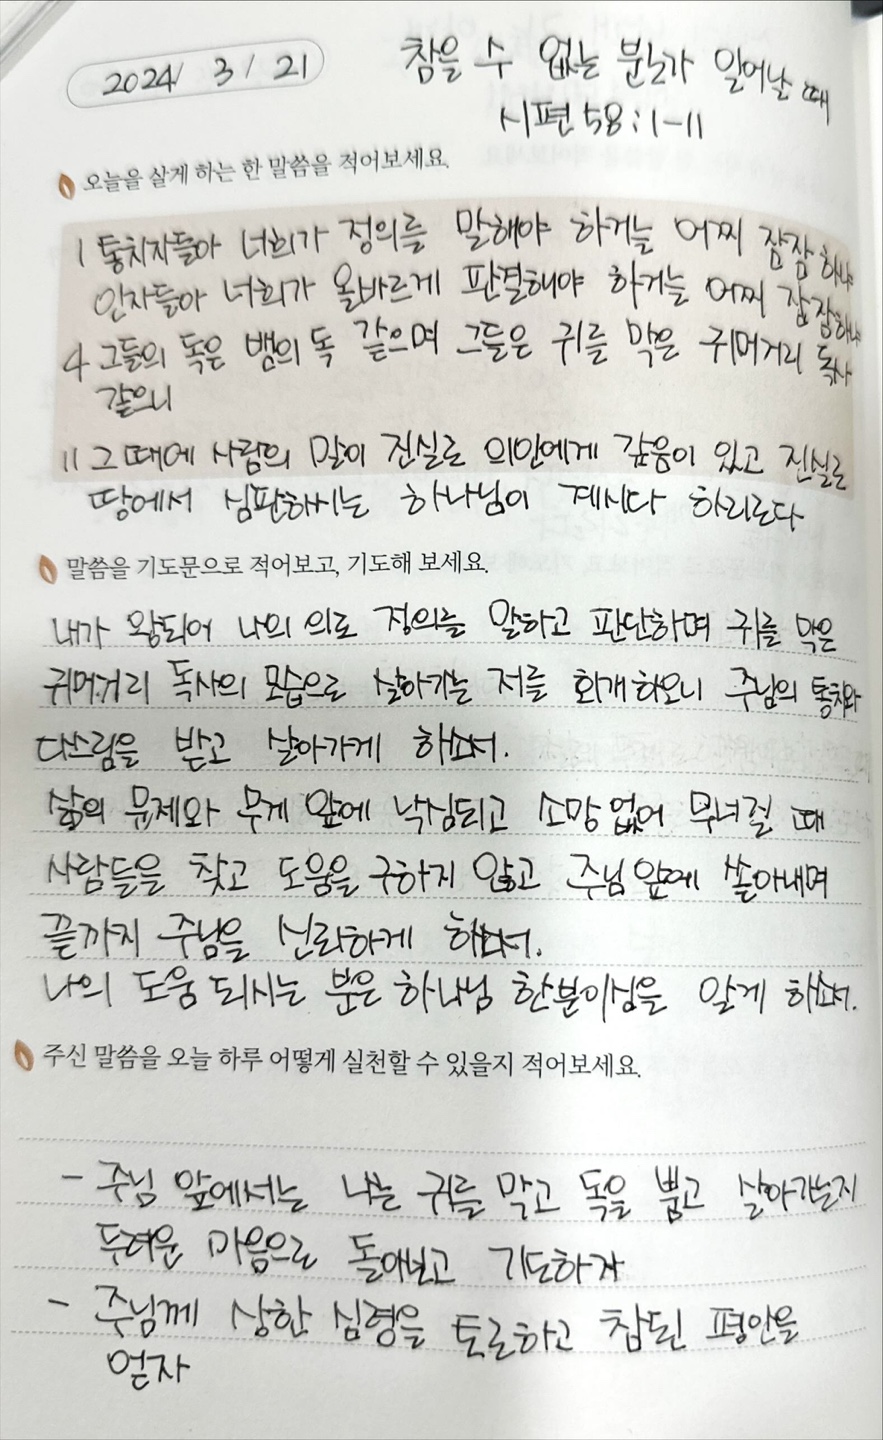 2024/ 3 / 21
참을 수 없는 분노가 일어날 때
시편 58:1-11
오늘을 살게 하는 한 말씀을 적어보세요.
1 통치자들아 너희가 정의를 말해야 하거늘 어찌 잠잠하냐
인자들아 너희가 올바르게 판결해야 하거늘 어찌 잠잠하냐
4 그들의 독은 뱀의 독 같으며 그들은 귀를 막은 귀머거리 독사
같으니
11 그 때에 사람의 말이 진실로 의인에게 갚음이 있고 진실로
땅에서 심판하시는 하나님이 계시다 하리로다
말씀을 기도문으로 적어보고, 기도해 보세요.
내가 왕되어 나의 의로 정의를 말하고 판단하며 귀를 막은
귀머거리 독사의 모습으로 살아가는 저를 회개하오니 주님의 통치와
다스림을 받고 살아가게 하소서.
삶의 문제와 무게 앞에 낙심되고 소망 없어 무너질 때
사람들을 찾고 도움을 구하지 않고 주님 앞에 쏟아내며
끝까지 주님을 신뢰하게 하소서.
나의 도움 되시는 분은 하나님 한분이심을 알게 하소서.
주신 말씀을 오늘 하루 어떻게 실천할 수 있을지 적어보세요.
- 주님 앞에서는 나는 귀를 막고 독을 뿜고 살아가는지
두려운 마음으로 돌아보고 기도하자
- 주님께 상한 심령을 토로하고 참된 평안을
얻자